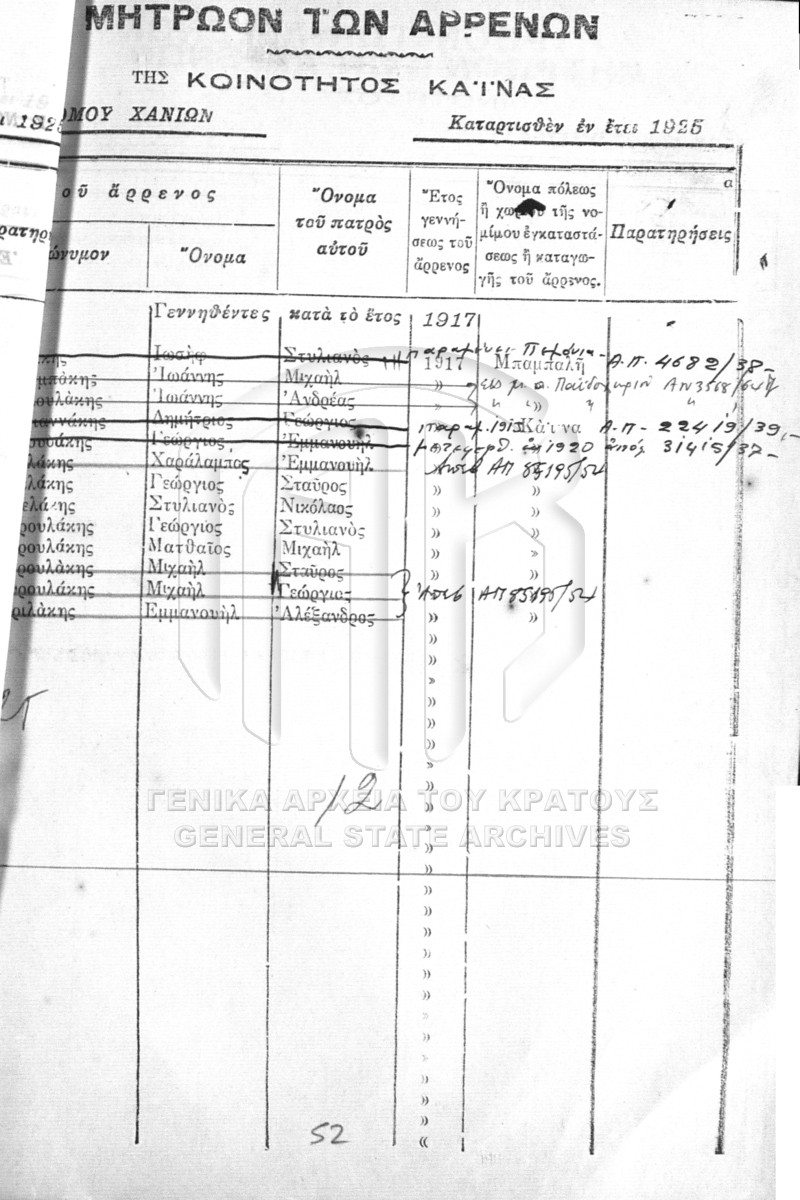 ΜΗΤΡΩΟΝ ΤΩΝ ΑΡΡΕΝΩΝ
ΤΗΣ ΚΟΙΝΟΤΗΤΟΣ ΚΑΪΝΑΣ
1925
ΟΜΟΥ ΧΑΝΙΩΝ
Καταρτισθὲν ἐν ἔτει 1925
οῦ ἄρρενος
Ὄνομα τοῦ πατρὸς αὐτοῦ
Ἔτος γεννήσεως τοῦ ἄρρενος
Ὄνομα πόλεως ἢ χωρίου τῆς νομίμου ἐγκαταστάσεως ἢ καταγωγῆς τοῦ ἄρρενος.
Παρατηρήσεις
α
ώνυμον
Ὄνομα
Γεννηθέντες κατὰ τὸ ἔτος 1917
άκης Ἰωσὴφ Στυλιανὸς 1917 Μπαμπαλῆ Α.Π. 4682/38-
μπάκης Ἰωάννης Μιχαὴλ »
ουλάκης Ἰωάννης Ἀνδρέας » » »
ιαννάκης Δημήτριος Γεώργιος Κάϊνα Α.Π- 22419/39,-
σουάκης Γεώργιος Ἐμμανουὴλ 1920 31415/37-
λάκης Χαράλαμπος Ἐμμανουὴλ ΑΠ 85195/54
λάκης Γεώργιος Σταῦρος » »
ελάκης Στυλιανὸς Νικόλαος » »
ρουλάκης Γεώργιος Στυλιανὸς » »
ρουλάκης Ματθαῖος Μιχαὴλ » »
ρουλάκης Μιχαὴλ Σταῦρος » »
ρουλάκης Μιχαὴλ Γεώργιος ΑΠ 85195/54
ριλάκης Εμμανουὴλ Ἀλέξανδρος » »
12
ΓΕΝΙΚΑ ΑΡΧΕΙΑ ΤΟΥ ΚΡΑΤΟΥΣ
GENERAL STATE ARCHIVES
52